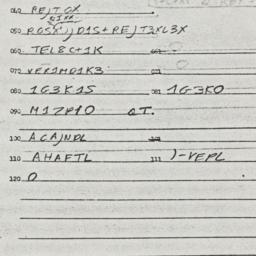 040 REJTGX
050 ROSX))D1S+REJT3XL3X
060 TEL8C+1K
070 VER1MD1K3
080 1G3K1S 081 1G3K0
090 M1ZPA0 QT.
100 ACAJNDL
110 AHAFTL 111 )-VERL
120 0